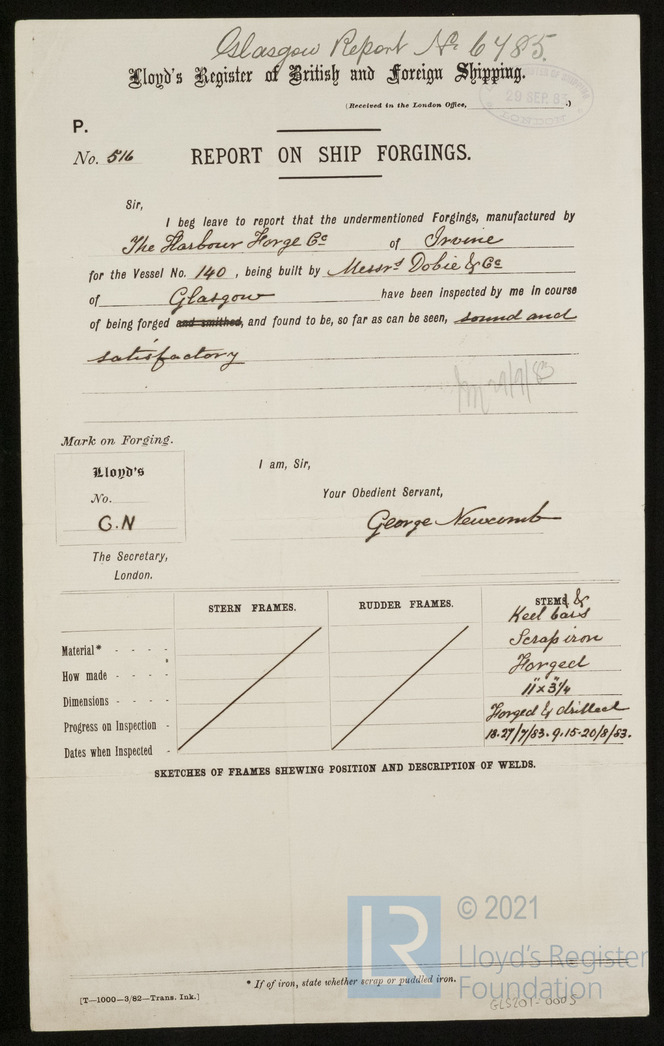 Glasgow Report No 6785.
Lloyd's Register of British and Foreign Shipping.
(Received in the London Office, .)
29 SEP. 83
LONDON
P.
No. 516
REPORT ON SHIP FORGINGS.
Sir,
I beg leave to report that the undermentioned Forgings, manufactured by
The Harbour Forge Co of Irvine
for the Vessel No. 140, being built by Messrs Dobie & Co
of Glasgow have been inspected by me in course
of being forged and smithed, and found to be, so far as can be seen, sound and
satisfactory
Mark on Forging.
Lloyd's
No.
G.N
I am, Sir,
Your Obedient Servant,
George Newcomb
The Secretary,
London.
STERN FRAMES. RUDDER FRAMES. STEMS &
Keel bars
Material* - - - - Scrap iron
How made - - - - Forged
Dimensions - - - - 11" x 3 1/4
Progress on Inspection - Forged & drilled
Dates when Inspected - 18.27/7/83. 9.15.20/8/83.
SKETCHES OF FRAMES SHEWING POSITION AND DESCRIPTION OF WELDS.
* If of iron, state whether scrap or puddled iron.
[T—1000—3/82—Trans. Ink.]
LR
© 2021
Lloyd's Register
Foundation
GLS201-0005